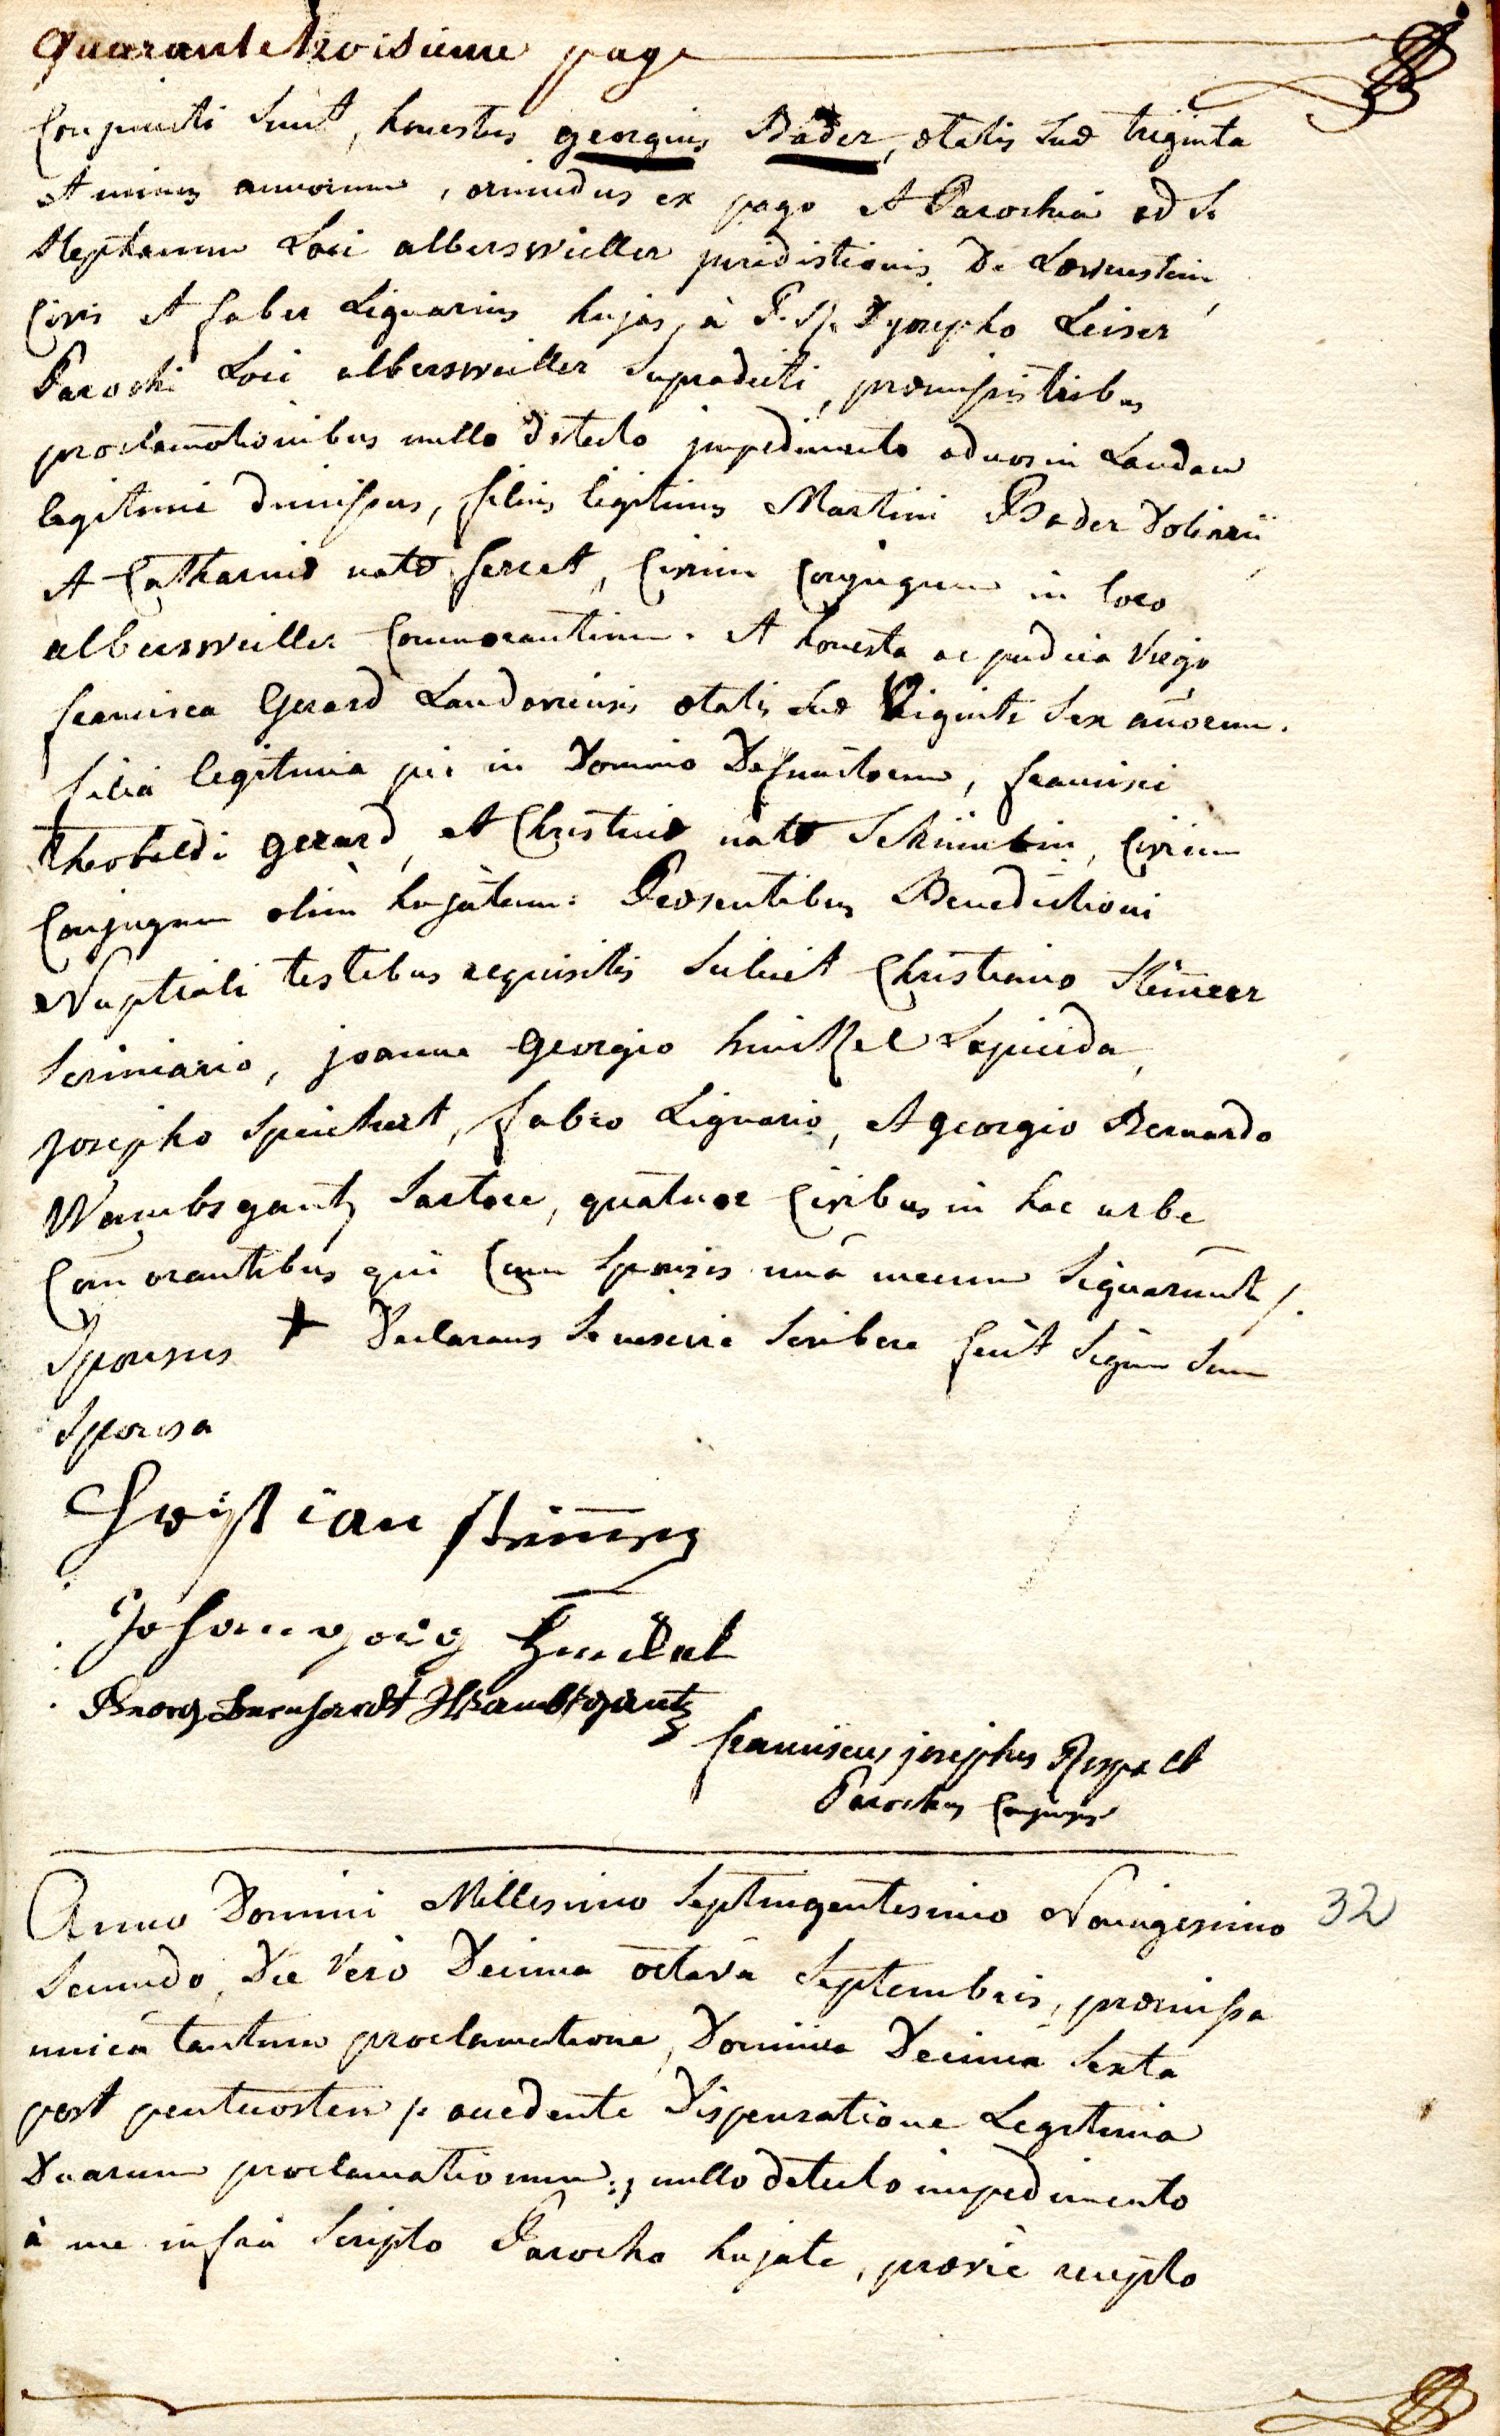 quarante troisieme page
Conjuncti sunt, honestus georgius Bader, ætatis suæ triginta
et unius annorum, oriundus ex pago et Parochia ad S.
Stephanum Loci albersweiller juridictionis De Lœwenstein,
Civis et faber Lignarius hujas, à Josepho Leiser
Parochi Loci albersweiller supradicti, præmissis tribus
proclamationibus nullo detecto impedimento ad nos in Landau
legitimè dimissus, filius legitimus Martini Bader Doliarii
et Catharinæ natæ ferret, Civium Conjugum in loco
albersweiller Commorantium. et honesta ac pudica Virgo
francisca Gerard Landaviensis ætatis suæ Viginti sex añorum.
filia legitima piè in Domino Defunctorum, francisci
theobaldi gerard, et Christinæ natæ, Civium
Conjugum olim hujatum: Præsentibus Benedictioni
Nuptiali testibus requisitis scilicet Christiano Stem̄er
scriniario, joanne georgio hinckel Lapicida,
josepho Speichert, fabro Lignario, et georgio Bernardo
Wambsgantz sartore, quatuor Civibus in hac urbe
Com̄orantibus qui Cum sponsis unà mecum signarunt /.
Sponsus + Declarans se nescire scribere fecit signum suum
Sponsa
Christian
Johann görg Hinckel
Georg Bernhardt Wambsgantz
franciscus josephus Respect
Parochus
Anno Domini Millesimo septingentesimo Nonagesimo 32
secundo, Die Verò Decima octavâ septembris, præmissa
unicâ tantum proclamatione, Dominica Decima sexta
post pentecosten /: accedente Dispensatione Legitima
Duarum proclamationum :/ nullo detecto impedimento
à me infra scripto Parocho hujate, præviè recepto